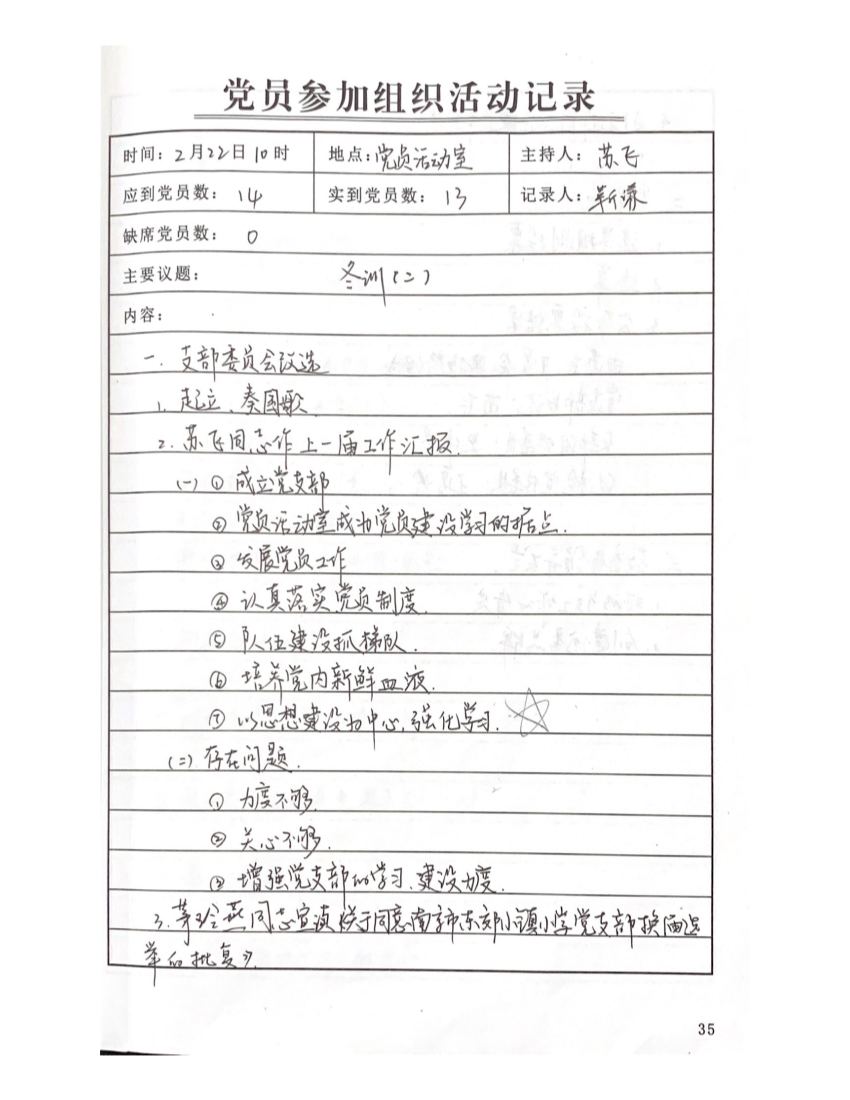 党员参加组织活动记录
时间：2月22日10时 地点：党员活动室 主持人：苏飞
应到党员数：14 实到党员数：13 记录人：靳
缺席党员数：0
主要议题：冬训(二)
内容：
一. 支部委员会改选
1. 起立、奏国歌
2. 苏飞同志作上一届工作汇报.
(一) ① 成立党支部
② 党员活动室成为党员建设学习的据点.
③ 发展党员工作
④ 认真落实党员制度.
⑤ 队伍建设抓梯队.
⑥ 培养党内新鲜血液.
⑦ 以思想建设为中心,强化学习.
(二) 存在问题.
① 力度不够.
② 关心不够.
③ 增强党支部的学习、建设力度.
3. 茅玲燕同志宣读《关于同意南京市东郊小镇小学党支部换届选
举的批复》.
35